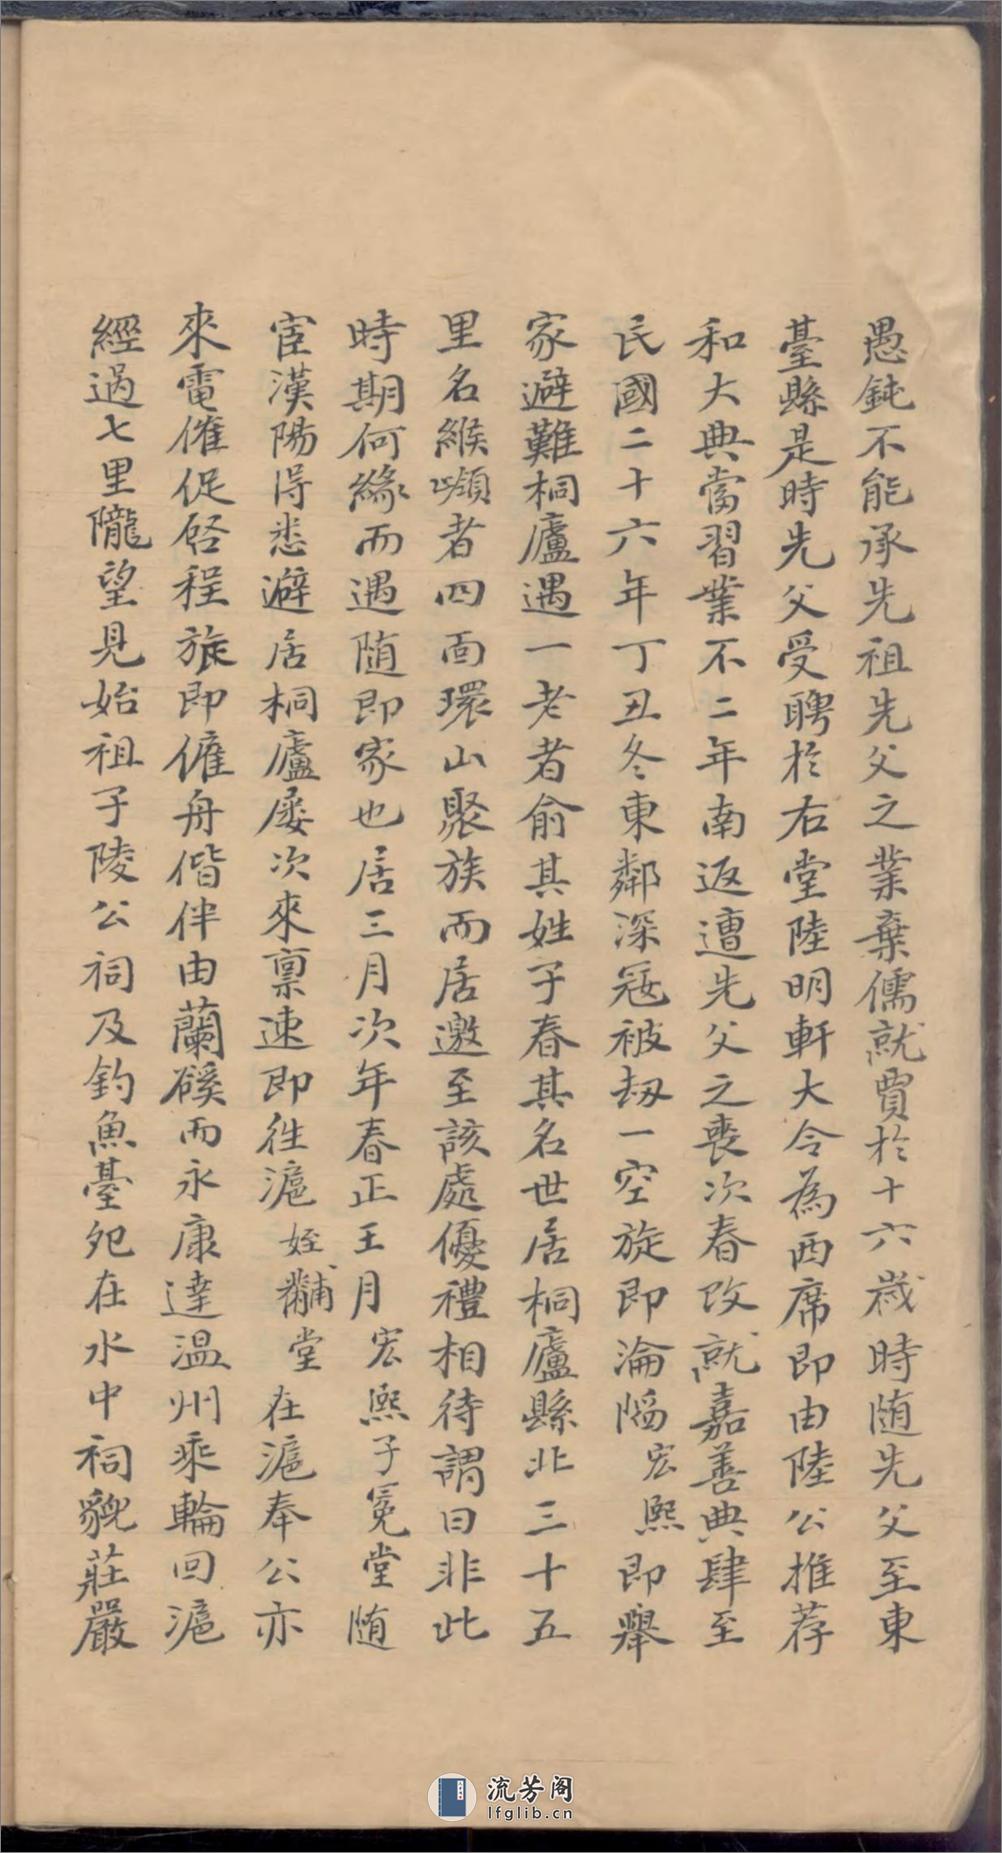 愚鈍不能承先祖先父之業棄儒就賈於十六歲時随先父至東
臺縣是時先父受聘於右堂陸明軒大令為西席即由陸公推荐
和大典當習業不二年南返遭先父之喪次春改就嘉善典肆至
民國二十六年丁丑冬東鄰深冦被刼一空旋即淪陷宏熙即舉
家避難桐廬遇一老者俞其姓子春其名世居桐廬縣北三十五
里名緱嶺者四面環山聚族而居邀至該處優禮相待謂曰非此
時期何緣而遇随即家也居三月次年春正王月宏熙子冕堂随
宦漢陽淂悉避居桐廬屡次來禀速即徃滬姪黼堂在滬奉公亦
來電催促啓程旅即僱舟偕伴由蘭磎而永康達温州乘輪回滬
經過七里隴望見始祖子陵公祠及釣魚臺宛在水中祠貌莊嚴
流芳阁
lfglib.cn